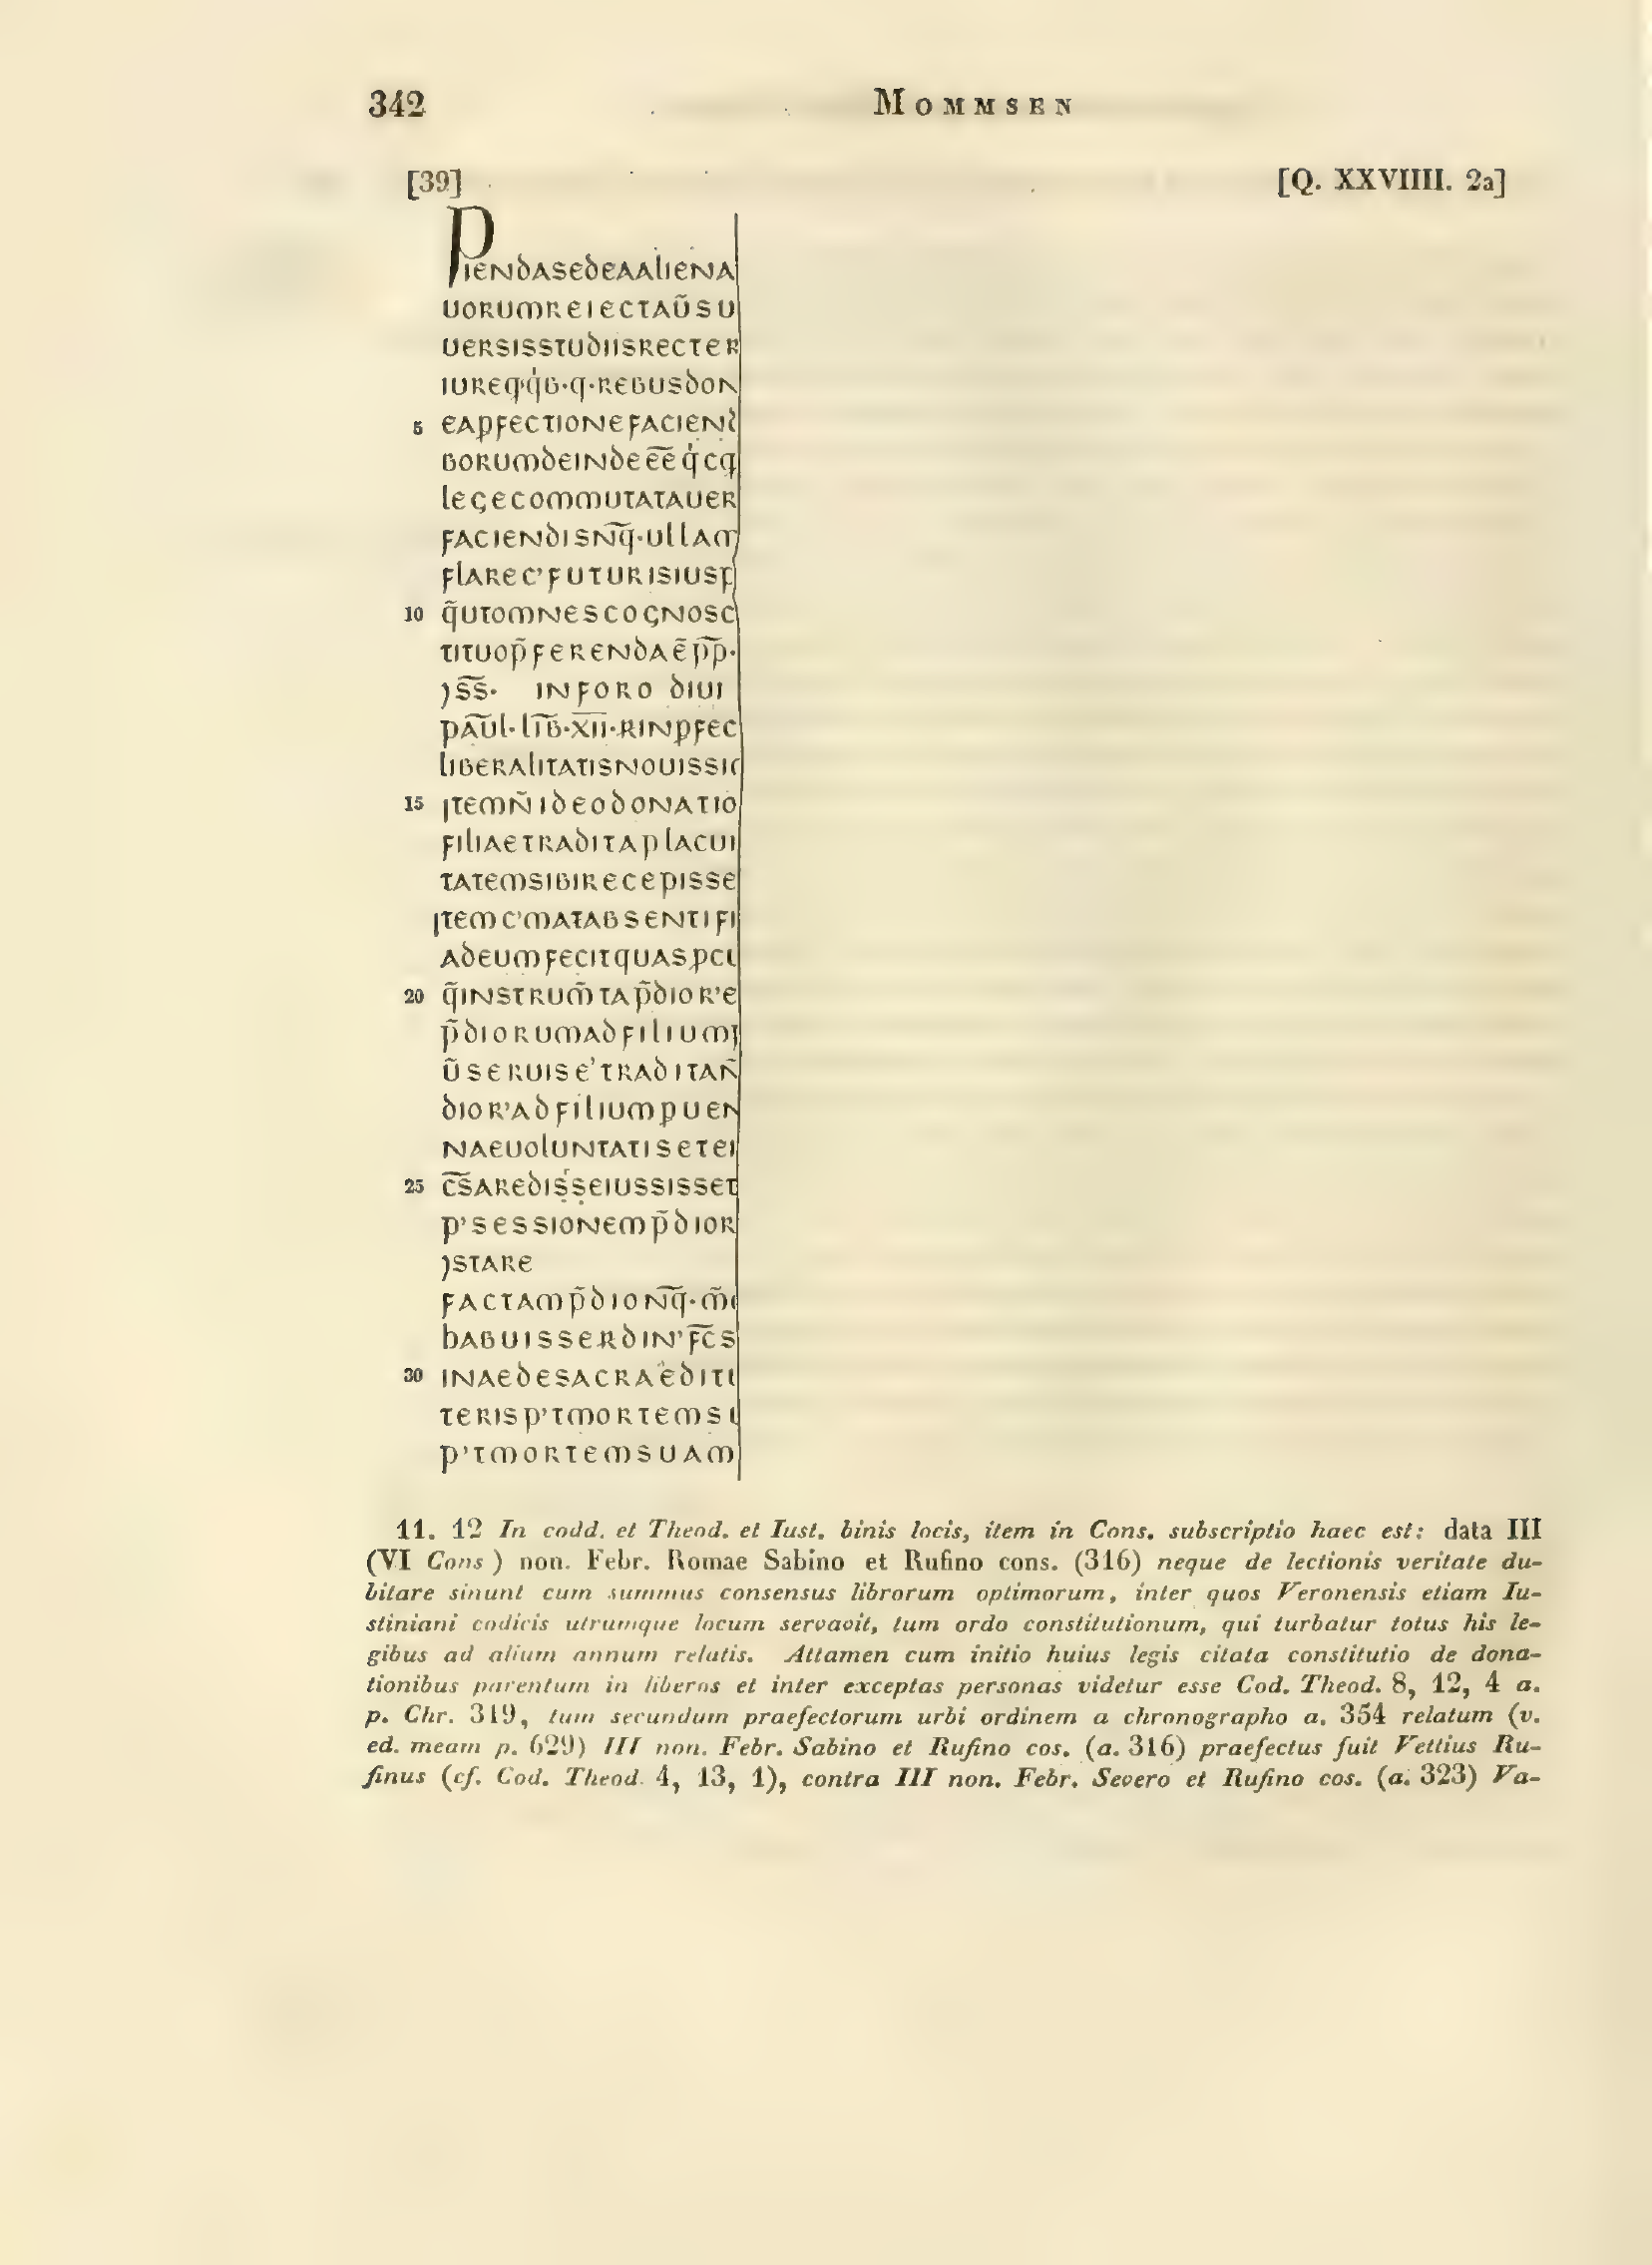 342 MOMMSEN
[39] [Q. XXVIIII. 2a]
PIENDASEDEAALIENA
UORUMREIECTAŪSU
UERSISSTUDIISRECTER
IUREq·q̇B·q·REBUSDON
5 EAPFECTIONEFACIEND
BORUMDEINDEE̅E̅q̇cq
LEGECOMMUTATAUER
FACIENDISN̅q̅·ULLAM
FLAREC’FUTURISIUSP
10 q̃UTOMNESCOGNOSC
TITUOP̃FERENDAẼP̅P̅·
)S̅S̅· INFORO DIUI
PA̅U̅L·LI̅B̅·X̅I̅I̅·RINPFEC
LIBERALITATISNOUISSI
15 ITEMÑIDEODONATIO
FILIAETRADITAPLACUI
TATEMSIBIRECEPISSE
ITEMC’MATABSENTIFI
ADEUMFECITQUASPCU
20 q̃INSTRUM̃TAP̃DIOR’E
P̃DIORUMADFILIUMP
ŨSERUISE’TRADITAÑ
DIOR’ADFILIUMPUEN
NAEUOLUNTATISETEI
25 C̅S̅AREDISṢEIUSSISSET
P’SESSIONEMP̃DIOR
)STARE
FACTAMP̃DION̅q̅·M̃
hABUISSERDIN’F̅C̅S
30 INAEDESACRAEDITU
TERISP’TMORTEMSU
P’TMORTEMSUAM
11. 12 In codd. et Theod. et Iust. binis locis, item in Cons. subscriptio haec est: data III
(VI Cons ) non. Febr. Romae Sabino et Rufino cons. (316) neque de lectionis veritate du-
bitare sinunt cum summus consensus librorum optimorum, inter quos Veronensis etiam Iu-
stiniani codicis utrumque locum servavit, tum ordo constitutionum, qui turbatur totus his le-
gibus ad alium annum relatis. Attamen cum initio huius legis citata constitutio de dona-
tionibus parentum in liberos et inter exceptas personas videtur esse Cod. Theod. 8, 12, 4 a.
p. Chr. 319, tum secundum praefectorum urbi ordinem a chronographo a. 354 relatum (v.
ed. meam p. 629) III non. Febr. Sabino et Rufino cos. (a. 316) praefectus fuit Vettius Ru-
finus (cf. Cod. Theod. 4, 13, 1), contra III non. Febr. Severo et Rufino cos. (a. 323) Va-